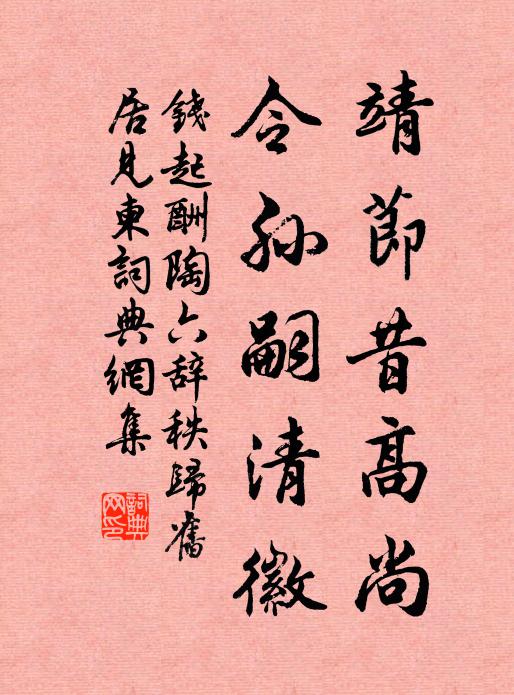 靖節昔高尚
令孫嗣清徽
錢起酬陶六辞秩歸舊
居見東詞典網集
詞典网印